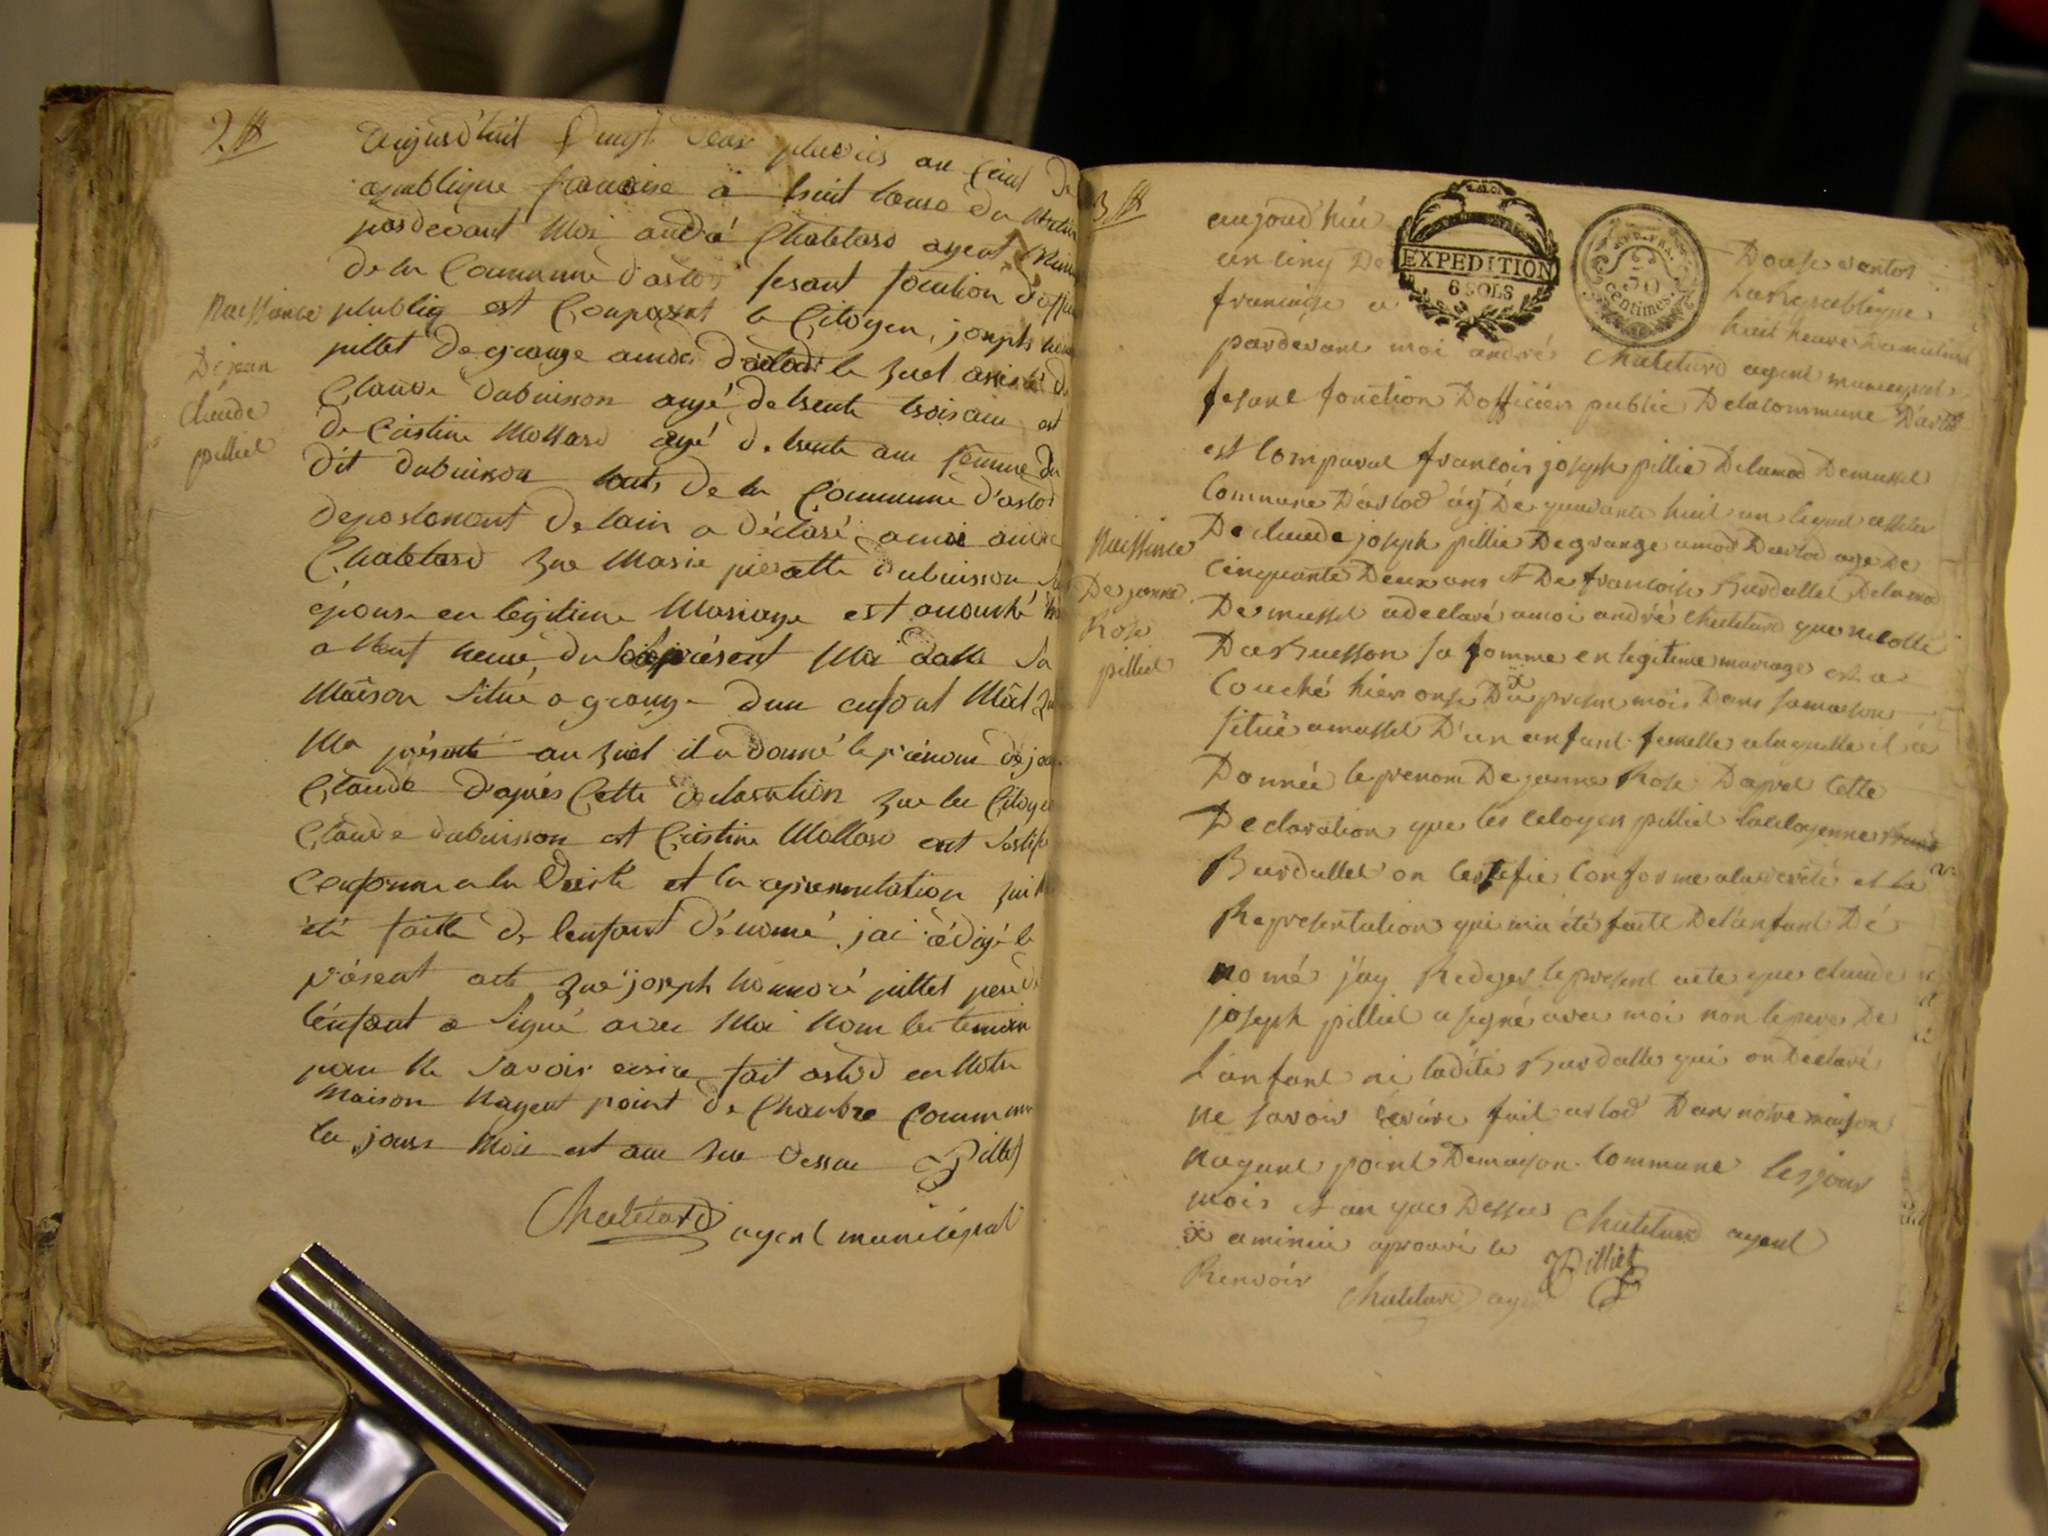 2
aujourd'huit Vingt deux pluvios an Cinq de
republique francoise a huit heure du matin
pardevant Moi andré Chatelard agent
de la Commune d'arlod fesant fonction d'offi
publiq est Comparut le Citoyen, joseph
Naissance
De jean
Claude
pilliet
pillet de grange amod d'arlod le quel assisté de
Claude dubuisson agé de trente trois ans est
de Cristine Mollard agé de trente ans femme du
dit dubuisson touts de la Commune d'arlod
departement de lain a déclaré a moi andré
Chatelard que Marie pierrette dubuisson
épouse en légitime Mariage est acouché
a neuf heure du présent Moi dans Sa
Maison Située a grange d'un enfant Mâl
Ma présenté au quel il a donné le prénom de jean
Claude d'après Cette déclaration que les Citoye
Claude dubuisson est Cristine Mollard ont
Conforme a la Verité et la representation qui
été faitte de lenfant dénomé, jai rédigé le
présent acte que joseph honnoré pillet pere de
lenfant a Signé avec Moi Nom les temoin
pour Ne Savoir ecrire fait arlod en Notre
Maison Nayent point de Chambre Commune
les jours Moi est an que dessu Pillet
Chatelard agent municipal
3
aujourd'hui Douse ventos
an cinq De La Republique
EXPEDITION
6 SOLS
REP. FRA.
50
centimes
francoise a huit heure Du matin
pardevant moi andré Chatelard agent municipal
fesant fonction D'officier public De la commune D'arlod
est Comparut francois joseph pillie De lamod De mussel
Commune D'arlod agé De quarante huit an lequel assister
Naissance
De jeanne
Rose
pilliet
De claude joseph pillie De grange amod D'arlod age De
cinquante Deux ans et De francoise Burdallet De lamod
De mussel a declaré a moi andré Chatelard que nicolle
DuBuisson sa fomme en legitime mariage est a
Couché hier onse Du x presen mois Dans sa maison
situé a mussel D'un anfant femelle a laquelle il a
Donnée le prenom De jeanne Rose D'apret Cette
Declaration que les Citoyen pilliet la citoyenne
Burdallet on Certifie Conforme a la verité et la
Representation qui ma été faite De l'anfant Dé
nomé j'ay Rediger le present acte que claude
joseph pilliet a signé avec moi non le pere De
L'anfant ni ladite Burdalle qui on Déclaré
ne savoir écrire fait arlod Dans notre maison
nayant point De maison Commune les jour
mois et an que Dessus Chatelard agent
x a minui aprouvé le Pilliet
Renvoir Chatelard agent